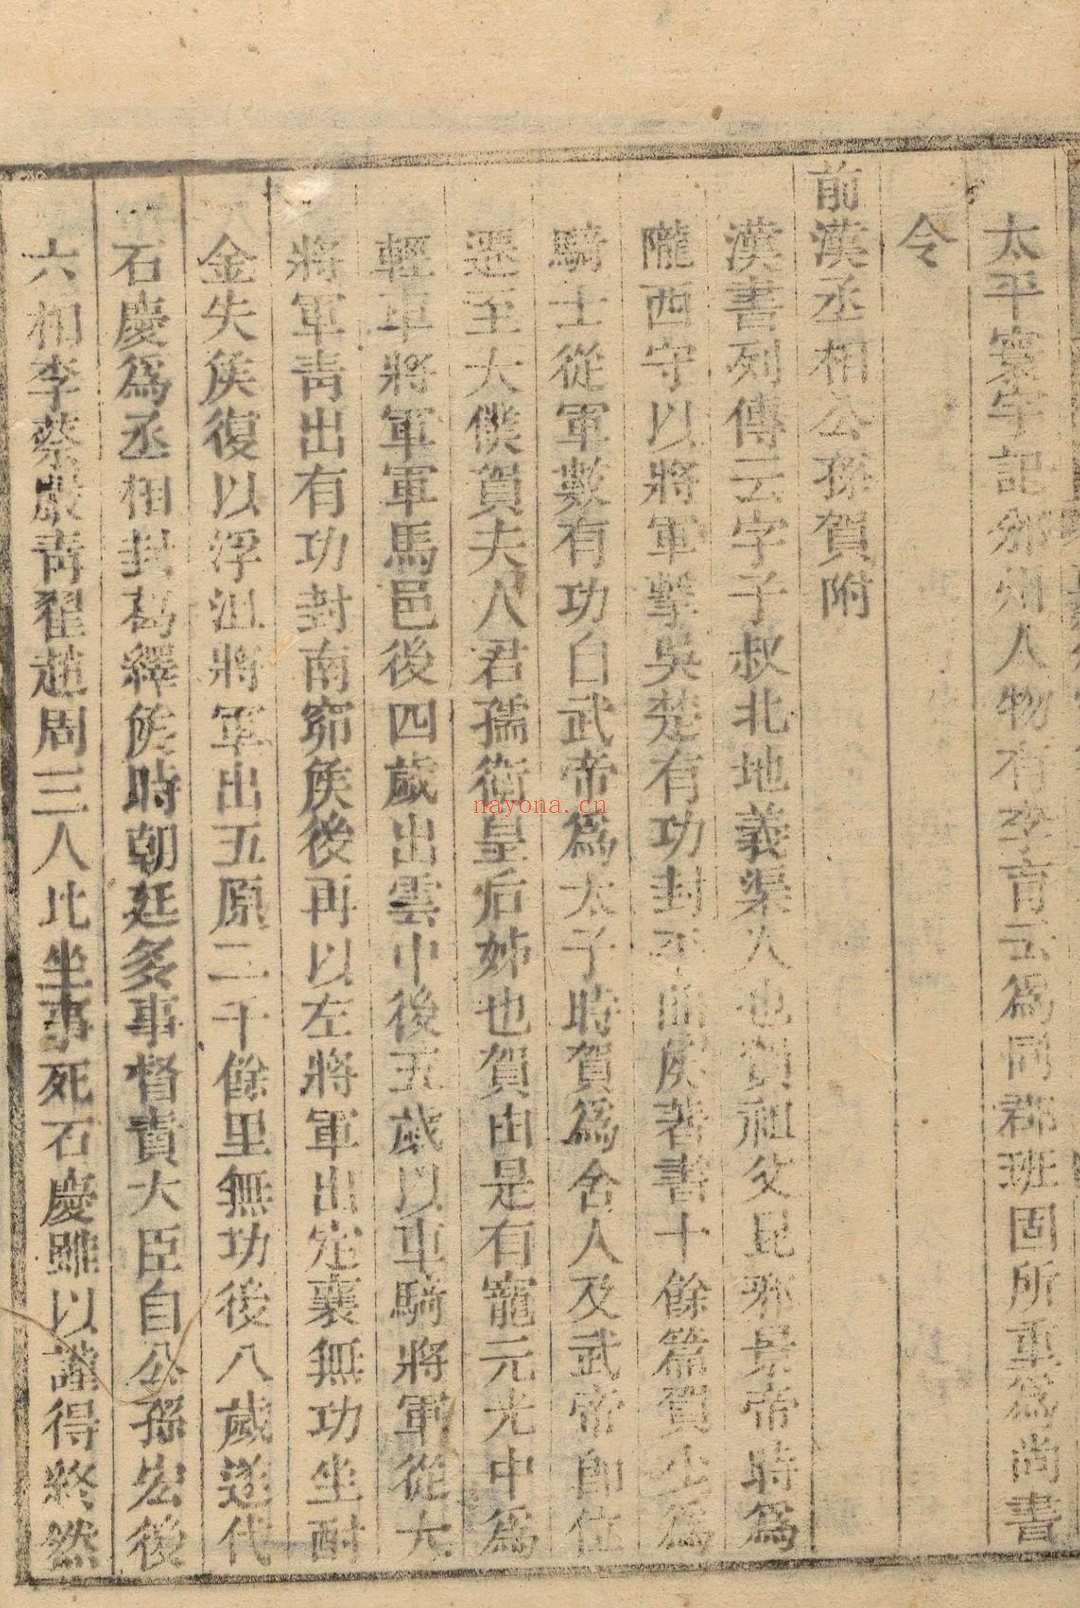 太平寰宇記邠州人物有李育云爲同郡班固所重爲尚書
令
前漢丞相公孫賀附
漢書列傳云字子叔北地義渠人也賀祖父昆邪景帝時爲
隴西守以將軍擊吳楚有功封平曲矦著書十餘篇賀少爲
騎士從軍數有功自武帝爲太子時賀爲舍人及武帝卽位
遷至大僕賀夫人君孺衛皇后姊也賀由是有寵元光中爲
輕車將軍軍馬邑後四歲出雲中後五歲以車騎將軍從大
將軍靑出有功封南窌矦後再以左將軍出定襄無功坐酎
金失矦復以浮沮將軍出五原二千餘里無功後八歲遂代
石慶爲丞相封葛繹矦時朝廷多事督責大臣自公孫宏後
六相李蔡嚴靑翟趙周三人比坐事死石慶雖以謹得終然
nayona.cn